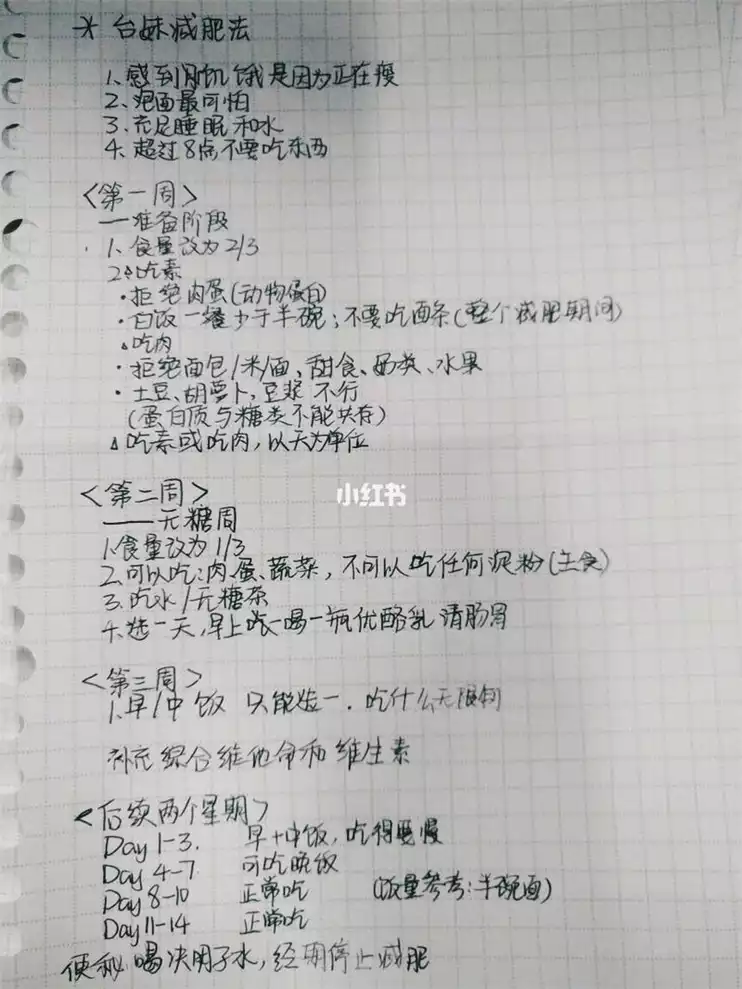 * 台妹减肥法
1. 感到肚饥饿是因为正在瘦
2. 泡面最可怕
3. 充足睡眠和水
4. 超过8点不要吃东西
<第一周>
—准备阶段
1. 食量改为2/3
2. △吃素
·拒绝肉蛋(动物蛋白)
·白饭一餐少于半碗;不要吃面条(整个减肥期间)
△吃肉
·拒绝面包/米/面、甜食、奶类、水果
·土豆、胡萝卜,豆浆 不行
(蛋白质与糖类不能共存)
△吃素或吃肉,以天为单位
<第二周>
——无糖周
1.食量改为1/3
2.可以吃:肉、蛋、蔬菜,不可以吃任何淀粉(主食)
3.吃水/无糖茶
4.选一天,早上吃一喝一瓶优酪乳 清肠胃
<第三周>
1.早/中饭 只能选一.吃什么无限制
补充综合维他命和维生素
<后续两个星期>
Day 1-3. 早+中饭,吃得要慢
Day 4-7 可吃晚饭
Day 8-10 正常吃 (饭量参考:半碗面)
Day 11-14 正常吃
便秘 喝决明子水,经期停止减肥
小红书